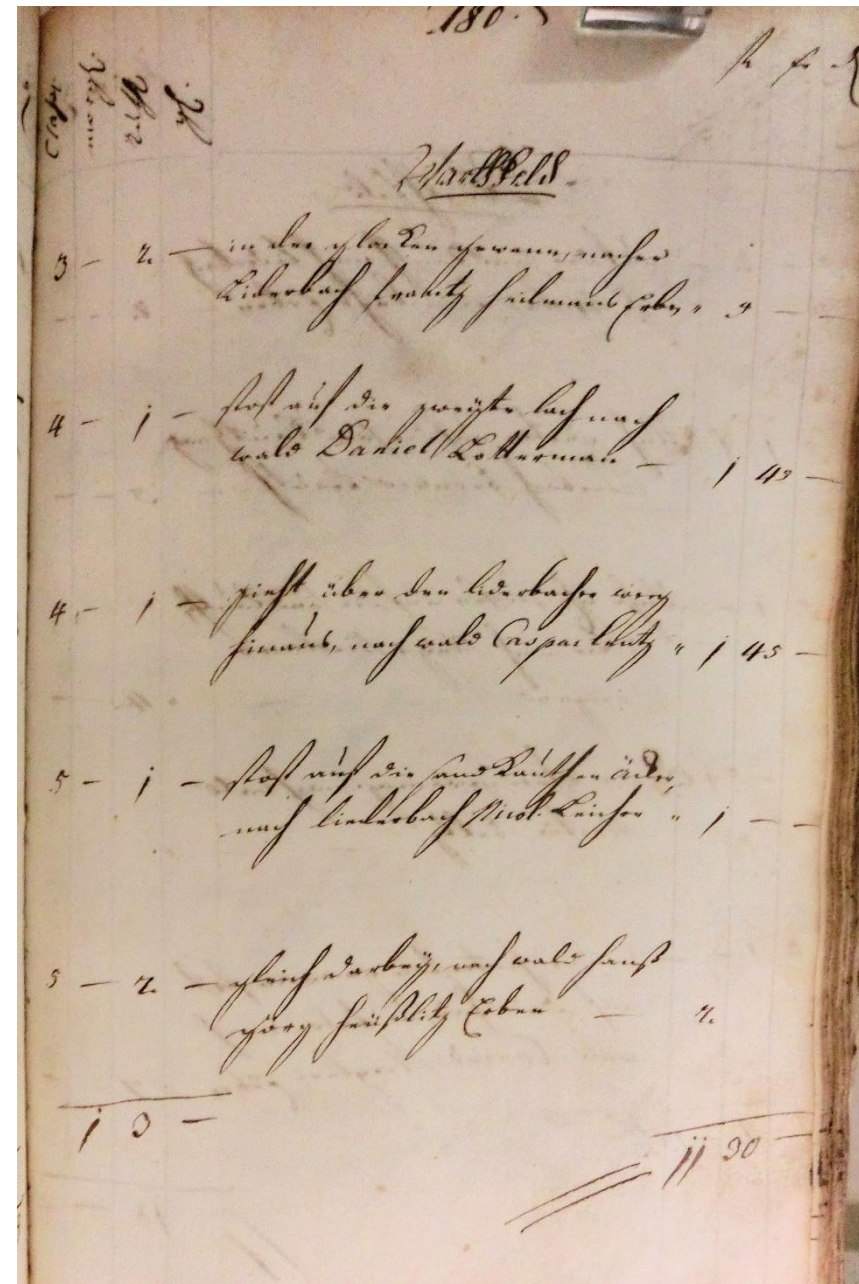 180.
Class
Morgen
Vrtl
Rth
fl xr ₰
Marckfeld
3 – 2. – in der glocken gewann, nacher
Liderbach frantz heilmans Erben " 5 – –
4 – 1 – stost auf die zweyte lach nach
wald Daniel Kolterman – 1 45 –
4 – 1 – zieht über den liderbacher weeg
hinaus, nach wald Caspar lentz " 1 45 –
5 – 1 – stost auf die sand Kauthen äcker,
nach liederbach Nicol. Leicher " 1 – –
5 – 2. – gleich darbey, nach wald hanß
görg heüßlitz Erben – 2.
1 3 – 11 30 –